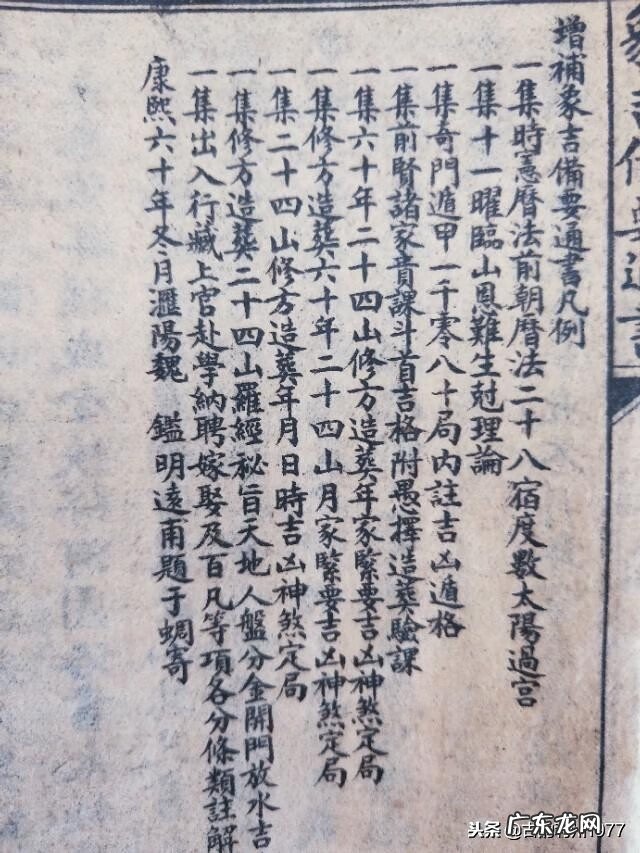 增補象吉備要通書凡例
一集時憲曆法前朝曆法二十八宿度數太陽過宮
一集十一曜臨山恩難生尅理論
一集奇門遁甲一千零八十局內註吉凶遁格
一集前賢諸家貴課斗首吉格附愚擇造葬驗課
一集六十年二十四山修方造葬年家緊要吉凶神煞定局
一集修方造葬六十年二十四山月家緊要吉凶神煞定局
一集二十四山修方造葬年月日時吉凶神煞定局
一集修方造葬二十四山羅經秘旨天地人盤分金開門放水吉
一集出入行藏上官赴學納聘嫁娶及百凡等項各分條類註解
康熙六十年冬月滙陽魏 鑑明遠甫題于蜩寄
头条
077
广东龙网